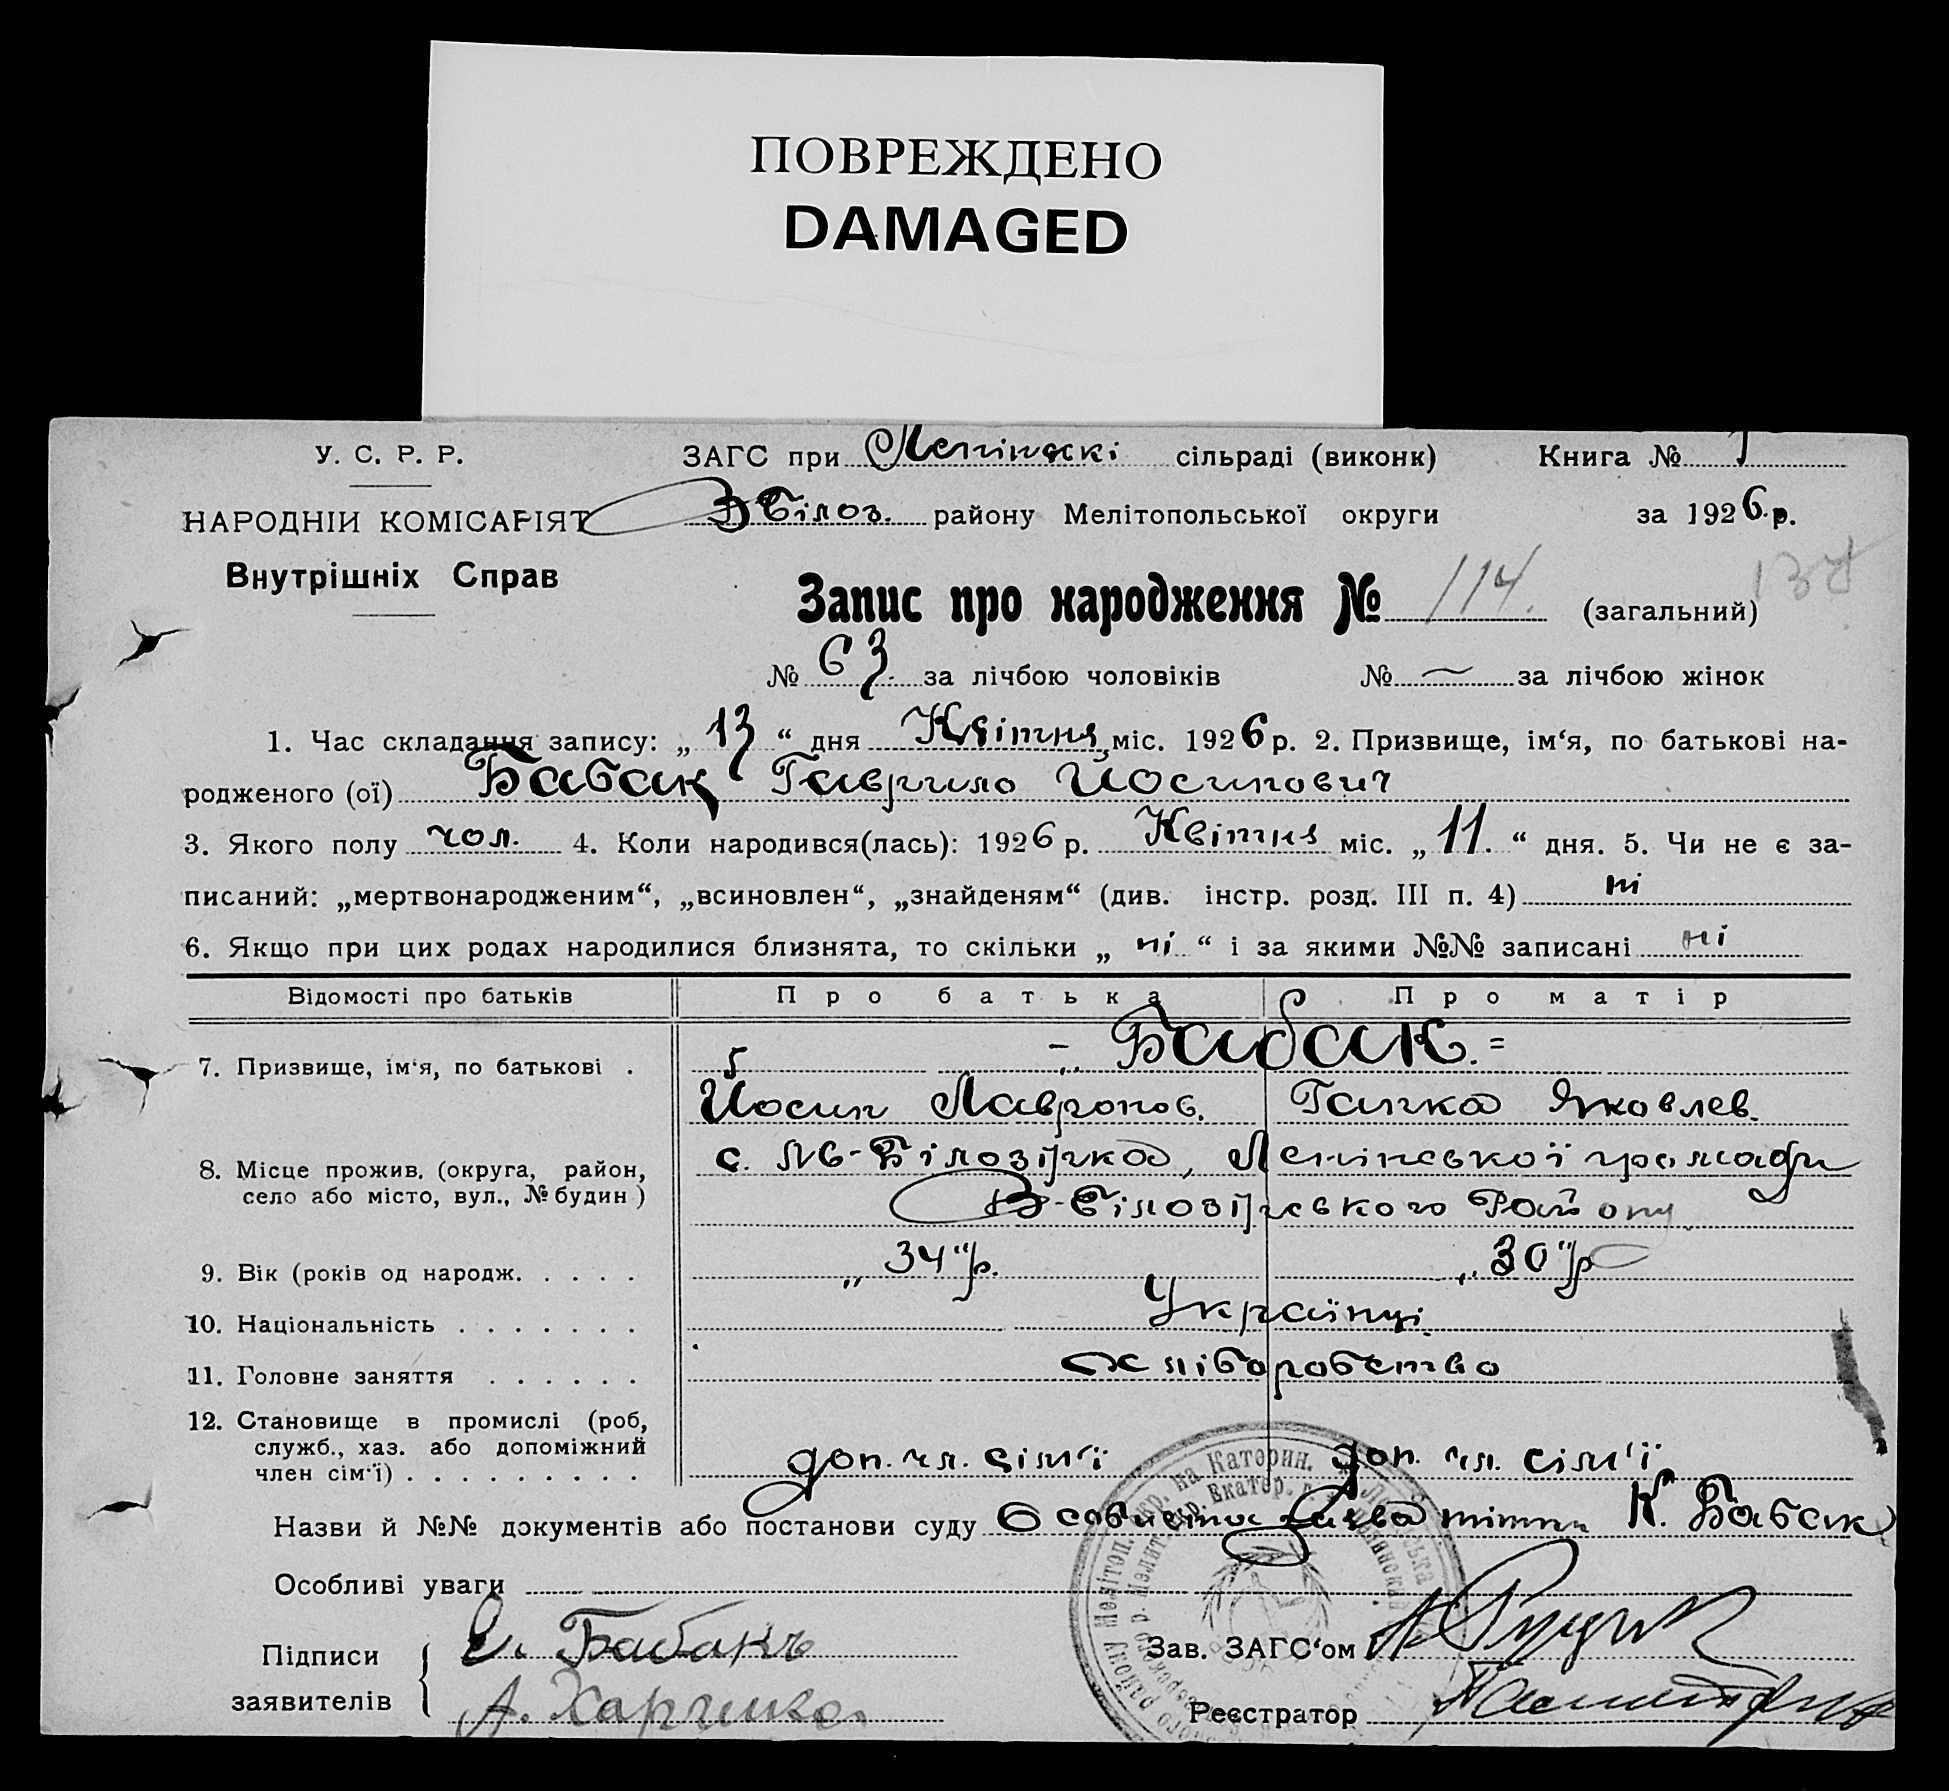 ПОВРЕЖДЕНО
DAMAGED
У. С. Р. Р.
ЗАГС при Ленінські сільраді (виконк) Книга №
НАРОДНІЙ КОМІСАРІЯТ
В Білоз. району Мелітопольської округи за 1926 р.
Внутрішніх Справ
Запис про народження № 114. (загальний)
№ 63 за лічбою чоловіків № — за лічбою жінок
1. Час складання запису: „ 13 “ дня Квітня міс. 1926 р. 2. Призвище, ім‘я, по батькові на-
родженого (ої) Бабак Гаврило Йосипович
3. Якого полу чол. 4. Коли народився(лась): 1926 р. Квітня міс. „ 11. “ дня. 5. Чи не є за-
писаний: „мертвонародженим“, „всиновлен“, „знайденям“ (див. інстр. розд. III п. 4) ні
6. Якщо при цих родах народилися близнята, то скільки „ ні “ і за якими №№ записані ні
Відомості про батьків Про батька Про матір
7. Призвище, ім‘я, по батькові . Бабак =
Йосип Лавронов. Ганка Яковлев.
8. Місце прожив. (округа, район,
село або місто, вул., № будин)
с. Білозірка, Ленінської громади
В-Білозірського Району
9. Вік (років од народж. . . . . „ 34 “ р. „ 30 “ р
10. Національність . . . . . . . Українці
11. Головне заняття . . . . . . Хліборобство
12. Становище в промислі (роб,
служб., хаз. або допоміжний
член сім‘ї) . . . . . . . . . доп. чл. сім‘ї доп. чл. сім‘ї
Назви й №№ документів або постанови суду Особиста заява К. Бабак
Особливі уваги
Підписи
заявителів
Є. Бабакъ
А. Харченко
Зав. ЗАГС‘ом
Реєстратор